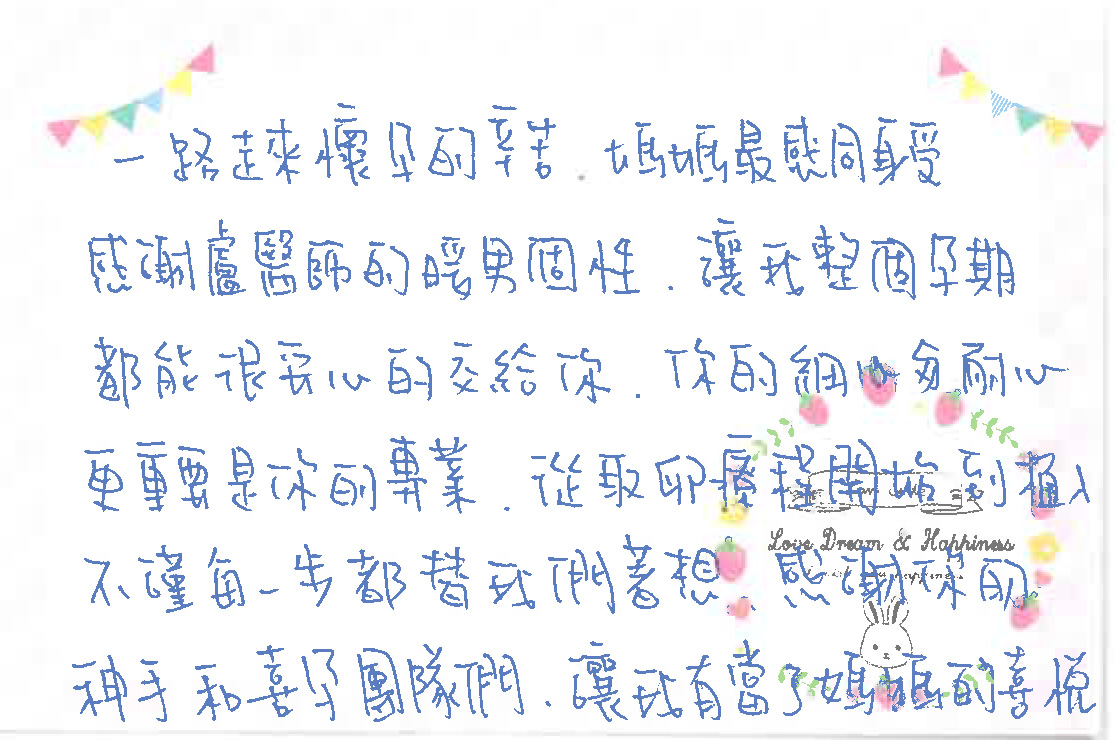 一路走來懷孕的辛苦.媽媽最感同身受
感謝盧醫師的暖男個性.讓我整個孕期
都能很安心的交給你.你的細心與耐心
更重要是你的專業.從取卵療程開始到植入
Love Dream & Happiness
不僅每一步都替我們著想、感謝你的
神手和喜孕團隊們.讓我有當了媽媽的喜悅